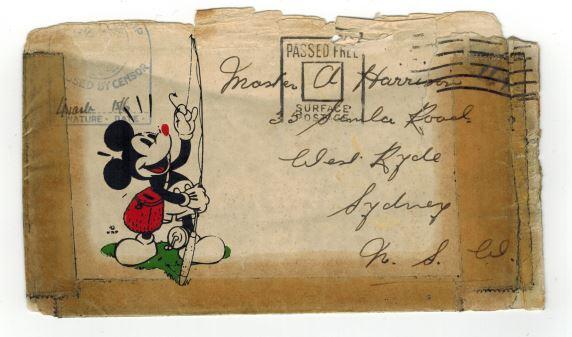 PASSED BY CENSOR
NATURE · DATE
PASSED FREE
SURFACE
POSTAGE
Master A Harrison
35 Simla Road
West Ryde
Sydney
N. S. W.